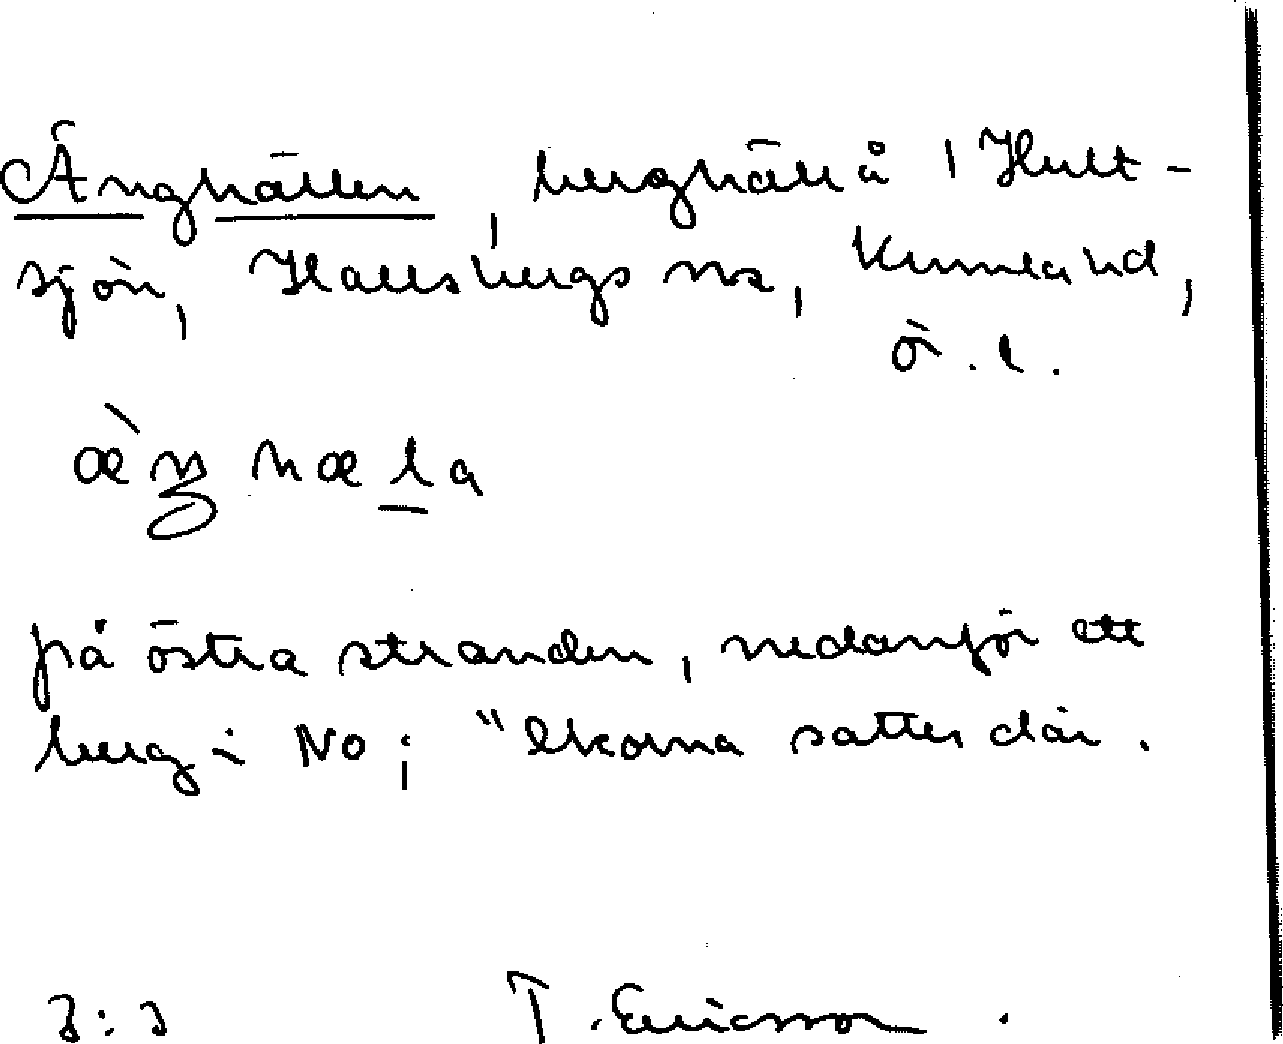 Änghällen, berghäll å i Hult-
sjön, Hallsbergs ns, Kumla hd,
ö. l.
æ̀ŋhæla
på östra stranden, nedanför ett
berg i NO; "Ekorna satt er där.
3:3 T. Ericsson.